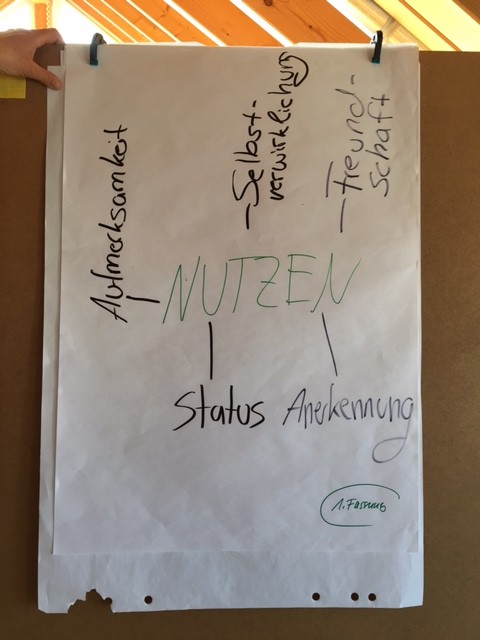 Aufmerksamkeit
- Selbst-
verwirklichung
- Freund-
schaft
NUTZEN
Status
Anerkennung
1. Fassung